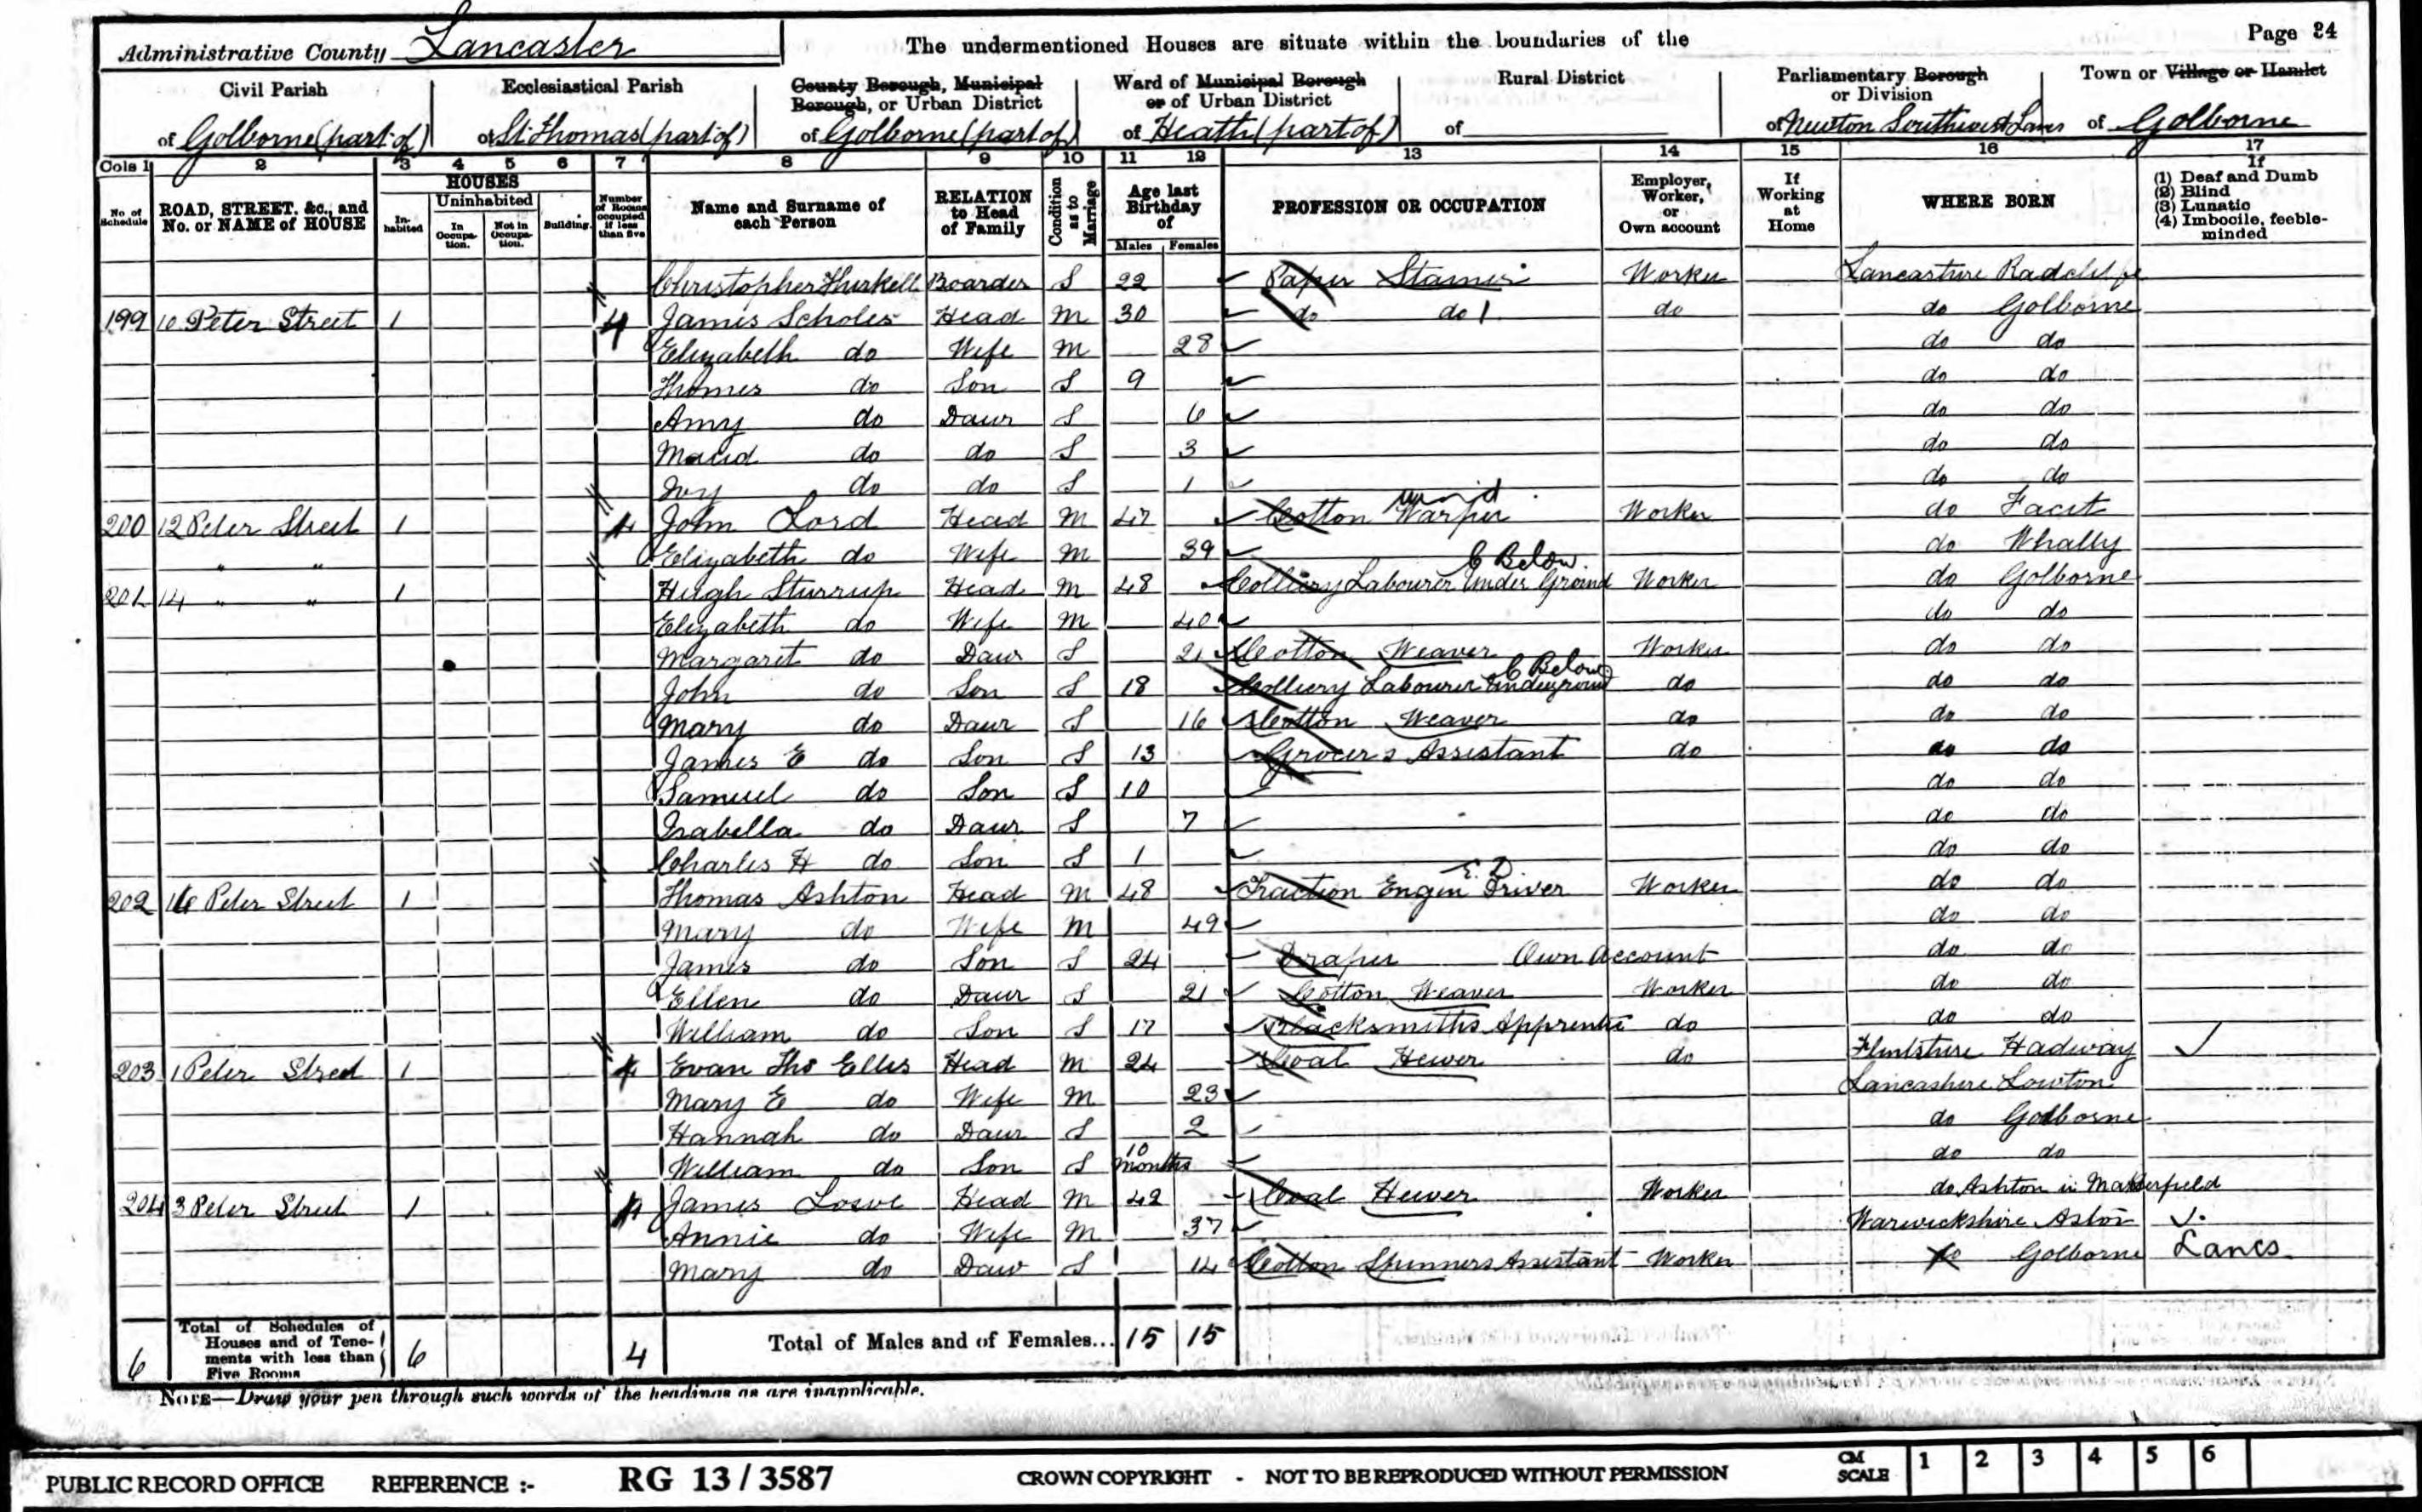 Administrative County Lancaster
The undermentioned Houses are situate within the boundaries of the
Page 24
Civil Parish
of Golborne (part of)
Ecclesiastical Parish
of St Thomas (part of)
County Borough, Municipal
Borough, or Urban District
of Golborne (part of)
Ward of Municipal Borough
or of Urban District
of Heath (part of)
Rural District
of
Parliamentary Borough
or Division
of Newton Southwest Lancs
Town or Village or Hamlet
of Golborne
Cols 1 2 3 4 5 6 7 8 9 10 11 12 13 14 15 16 17
No. of Schedule
ROAD, STREET, &c., and No. or NAME of HOUSE
HOUSES
Inhabited
Uninhabited
In Occupation.
Not in Occupation.
Building.
Number of Rooms occupied if less than five
Name and Surname of each Person
RELATION to Head of Family
Condition as to Marriage
Age last Birthday of
Males Females
PROFESSION OR OCCUPATION
Employer, Worker, or Own account
If Working at Home
WHERE BORN
If
(1) Deaf and Dumb
(2) Blind
(3) Lunatic
(4) Imbecile, feeble-minded
Christopher Thirkell Boarder S 22 Paper Stainer Worker Lancashire Radcliffe
199 10 Peter Street 1 4 James Scholes Head M 30 do do 1 do do Golborne
Elizabeth do Wife M 28 do do
Thomas do Son S 9 do do
Amy do Daur S 6 do do
Maud do do S 3 do do
Ivy do do S 1 do do
200 12 Peter Street 1 4 John Lord Head M 47 Cotton Warper Worker do Facit
" " Elizabeth do Wife M 39 do Whally
201 14 " " 1 Hugh Sturrup Head M 48 Colliery Labourer Under Ground C Below. Worker do Golborne
Elizabeth do Wife M 40 do do
Margaret do Daur S 21 Cotton Weaver Worker do do
John do Son S 18 Colliery Labourer Underground C Below do do do
Mary do Daur S 16 Cotton Weaver do do do
James E do Son S 13 Grocers Assistant do do do
Samuel do Son S 10 do do
Isabella do Daur S 7 do do
Charles H do Son S 1 do do
202 16 Peter Street 1 Thomas Ashton Head M 48 Traction Engin Driver E.D Worker do do
Mary do Wife M 49 do do
James do Son S 24 Draper Own Account do do
Ellen do Daur S 21 Cotton Weaver Worker do do
William do Son S 17 Blacksmiths Apprentice do do do
203 1 Peter Street 1 4 Evan Thos Ellis Head M 24 Coal Hewer do Flintshire Hadway
Mary E do Wife M 23 Lancashire Lowton
Hannah do Daur S 2 do Golborne
William do Son S 10 months do do
204 3 Peter Street 1 4 James Lowe Head M 42 Coal Hewer Worker do Ashton in Makerfield
Annie do Wife M 37 Warwickshire Aston
Mary do Daur S 14 Cotton Spinners Assistant Worker do Golborne Lancs
6 Total of Schedules of Houses and of Tenements with less than Five Rooms 6 4 Total of Males and of Females... 15 15
NOTE—Draw your pen through such words of the headings as are inapplicable.
PUBLIC RECORD OFFICE REFERENCE :- RG 13 / 3587 CROWN COPYRIGHT - NOT TO BE REPRODUCED WITHOUT PERMISSION CM SCALE 1 2 3 4 5 6